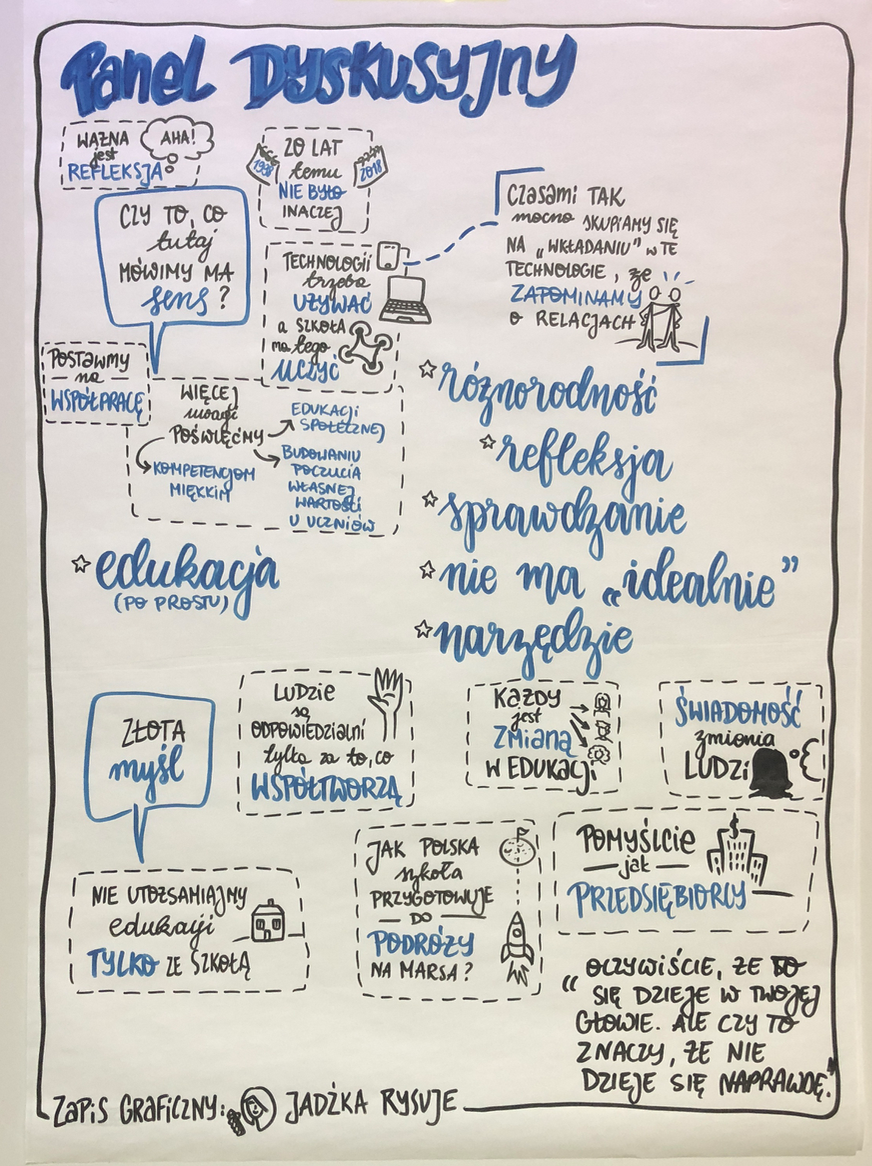 Panel Dyskusyjny
WAŻNA
jest
REFLEKSJA
AHA!
1998
2018
20 LAT
temu
NIE BYŁO
INACZEJ
CZY TO, CO
tutaj
MÓWIMY MA
sens?
TECHNOLOGII
trzeba
UŻYWAĆ
a SZKOŁA
ma tego
UCZYĆ
CZASAMI TAK
mocno SKUPIAMY SIĘ
NA „WKŁADANIU” w TE
TECHNOLOGIE, że
ZAPOMINAMY
O RELACJACH
POSTAWMY
na
WSPÓŁPRACĘ
WIĘCEJ
uwagi
POŚWIĘĆMY
EDUKACJI
SPOŁECZNEJ
KOMPETENCJOM
MIĘKKIM
BUDOWANIU
POCZUCIA
WŁASNEJ
WARTOŚCI
U UCZNIÓW
różnorodność
refleksja
sprawdzanie
nie ma „idealnie”
narzędzie
edukacja
(PO PROSTU)
ZŁOTA
myśl
LUDZIE
są
ODPOWIEDZIALNI
tylko za to, co
WSPÓŁTWORZĄ
KAŻDY
jest
ZMIANĄ
W EDUKACJI
ŚWIADOMOŚĆ
zmienia
LUDZI
NIE UTOŻSAMIAJMY
edukacji
TYLKO ZE SZKOŁĄ
JAK POLSKA
szkoła
PRZYGOTOWUJE
DO
PODRÓŻY
NA MARSA?
POMYŚLCIE
jak
PRZEDSIĘBIORCY
“OCZYWIŚCIE, ŻE TO
SIĘ DZIEJE W TWOJEJ
GŁOWIE. ALE CZY TO
ZNACZY, ŻE NIE
DZIEJE SIĘ NAPRAWDĘ.”
ZAPIS GRAFICZNY: JADŹKA RYSUJE